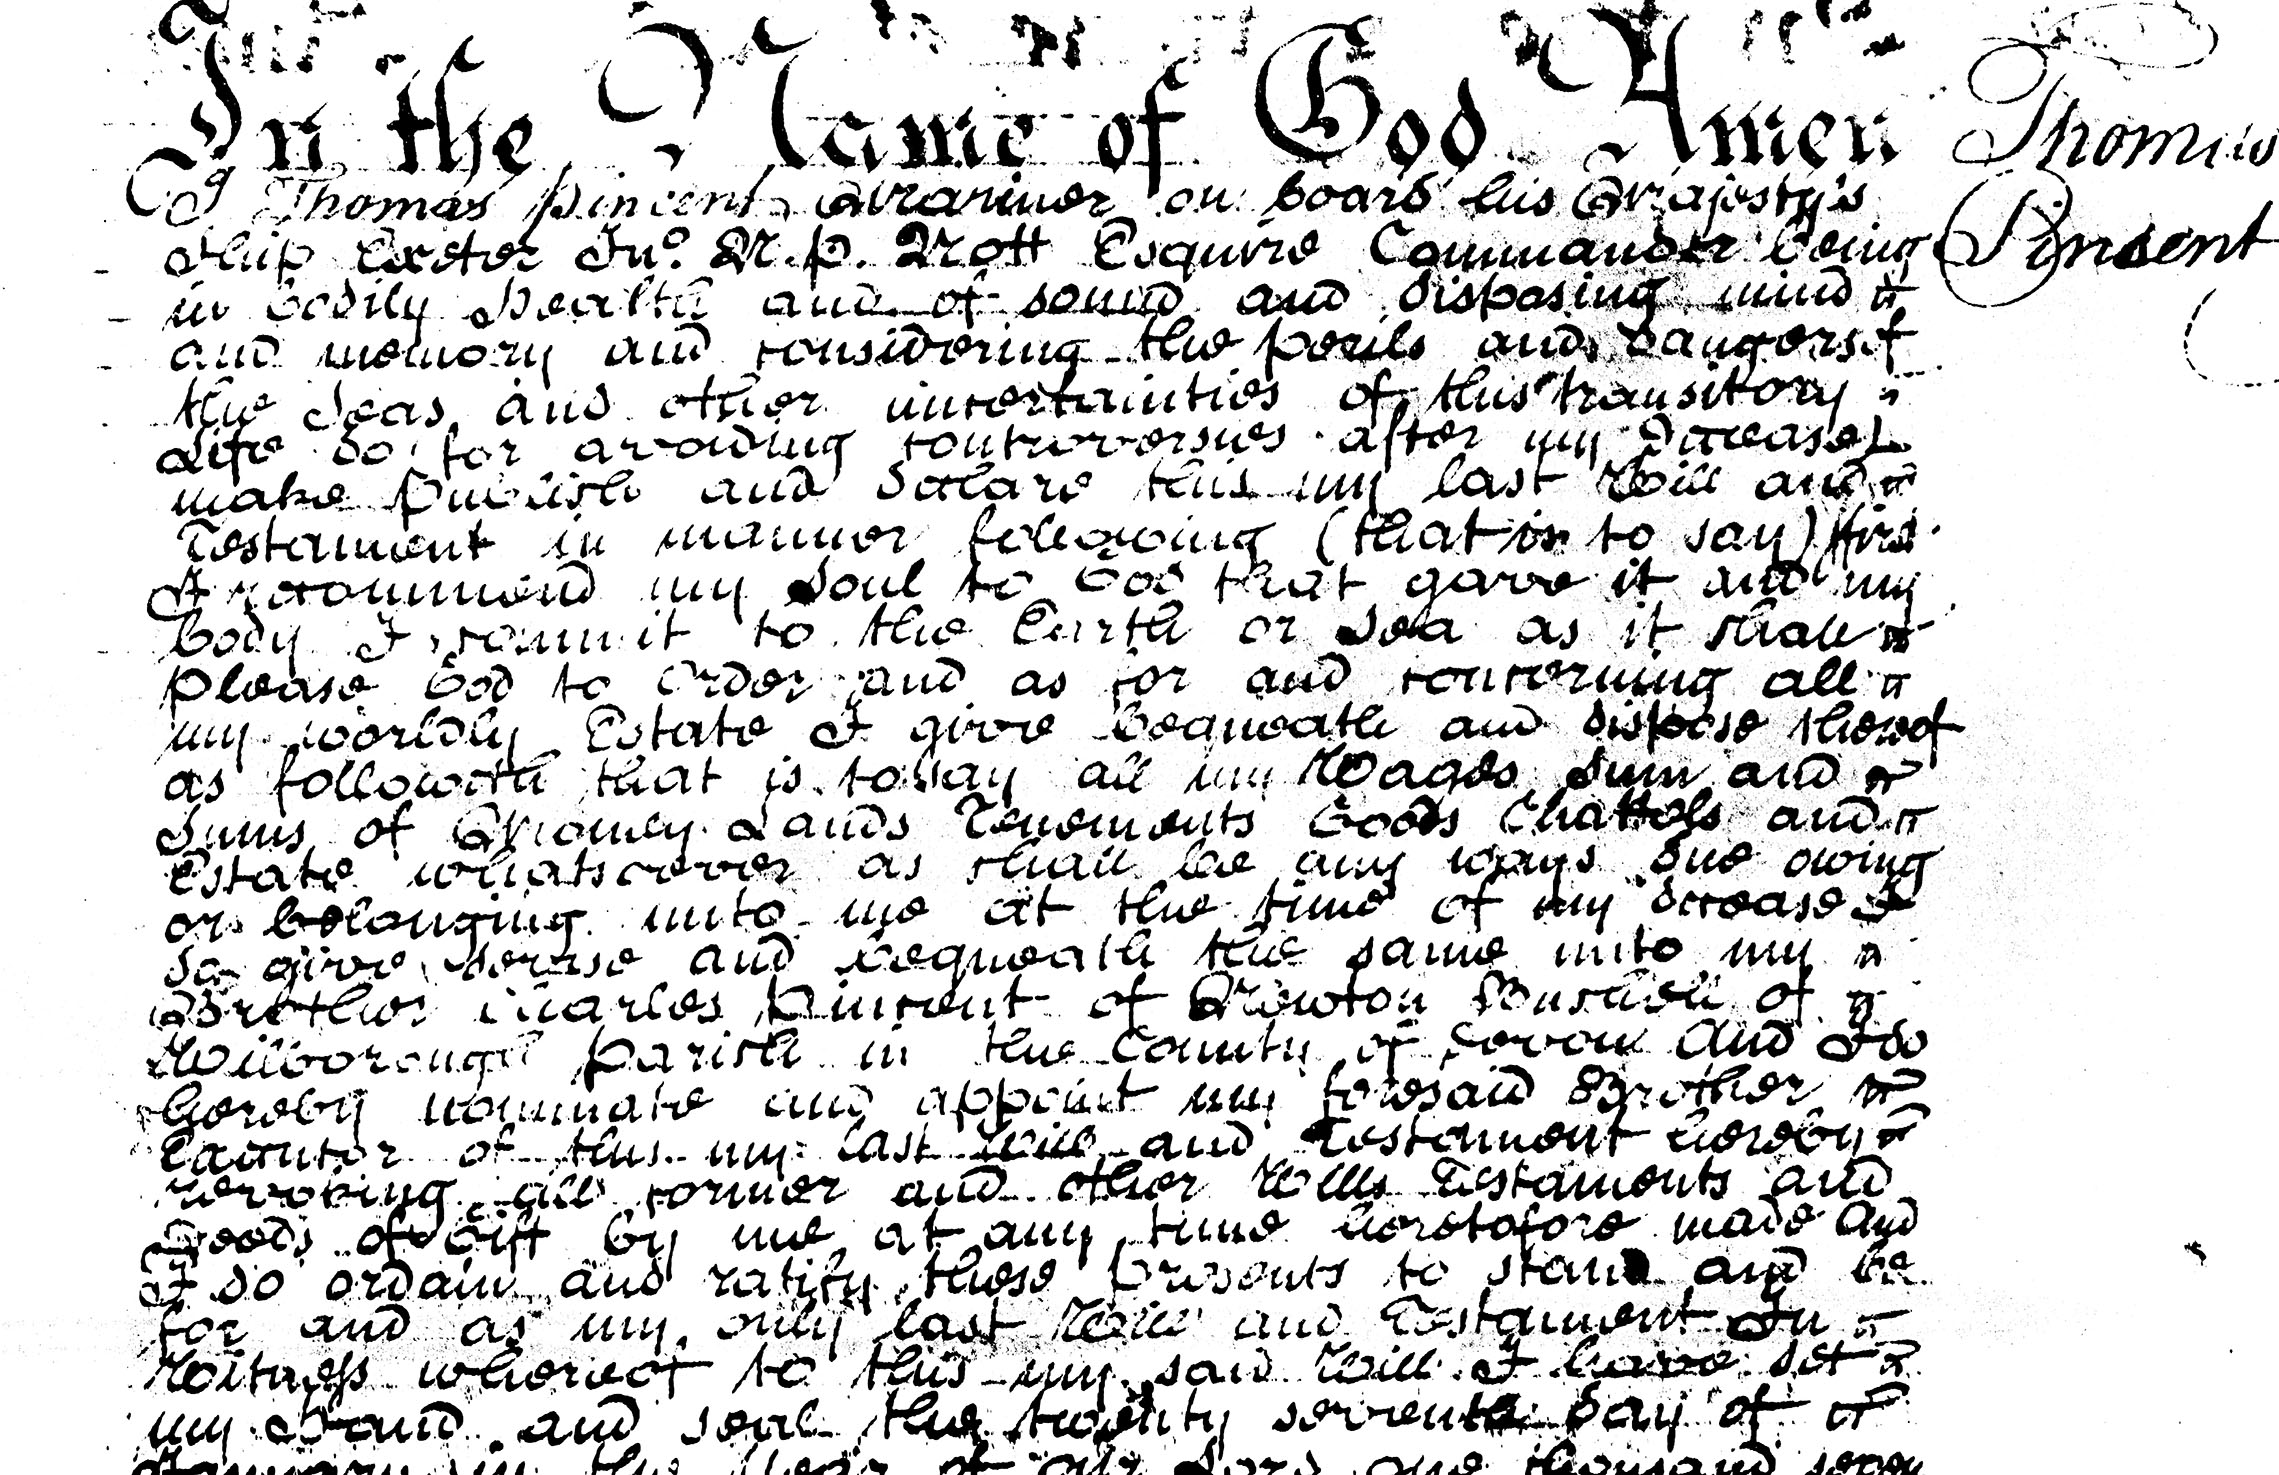 In the Name of God Amen
Thomas
Pinsent
I Thomas Pincent Mariner on board his Majesty's
Ship Exeter Jno. N. P. Nott Esquire Commander being
in bodily health and of sound and disposing mind
and memory and considering the perils and dangers of
the Seas and other uncertainties of this transitory
Life do for avoiding controversies after my Decease
make publish and declare this my last Will and
Testament in manner following (that is to say) first
I recommend my Soul to God that gave it and my
body I commit to the Earth or Sea as it shall
please God to order and as for and concerning all
my worldly Estate I give bequeath and dispose thereof
as followeth that is to say all my Wages Sum and
Sums of Money Lands Tenements Goods Chattels and
Estate whatsoever as shall be any ways due owing
or belonging unto me at the time of my decease I
do give devise and bequeath the same unto my
Brother Charles Pincent of Newton Bushell of
Wilborough parish in the County of Devon And I do
hereby nominate and appoint my foresaid Brother
Executor of this my last Will and Testament hereby
revoking all former and other Wills Testaments and
Deeds of Gift by me at any time heretofore made And
I do ordain and ratify these presents to stand and be
for and as my only last Will and Testament In
Witness whereof to this my said Will I have set
my Hand and seal the twenty seventh day of
January in the Year of our Lord one thousand seven